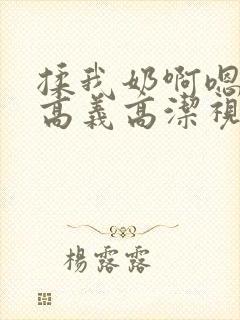 揉我奶啊嗯
高義高潔視
楊露露